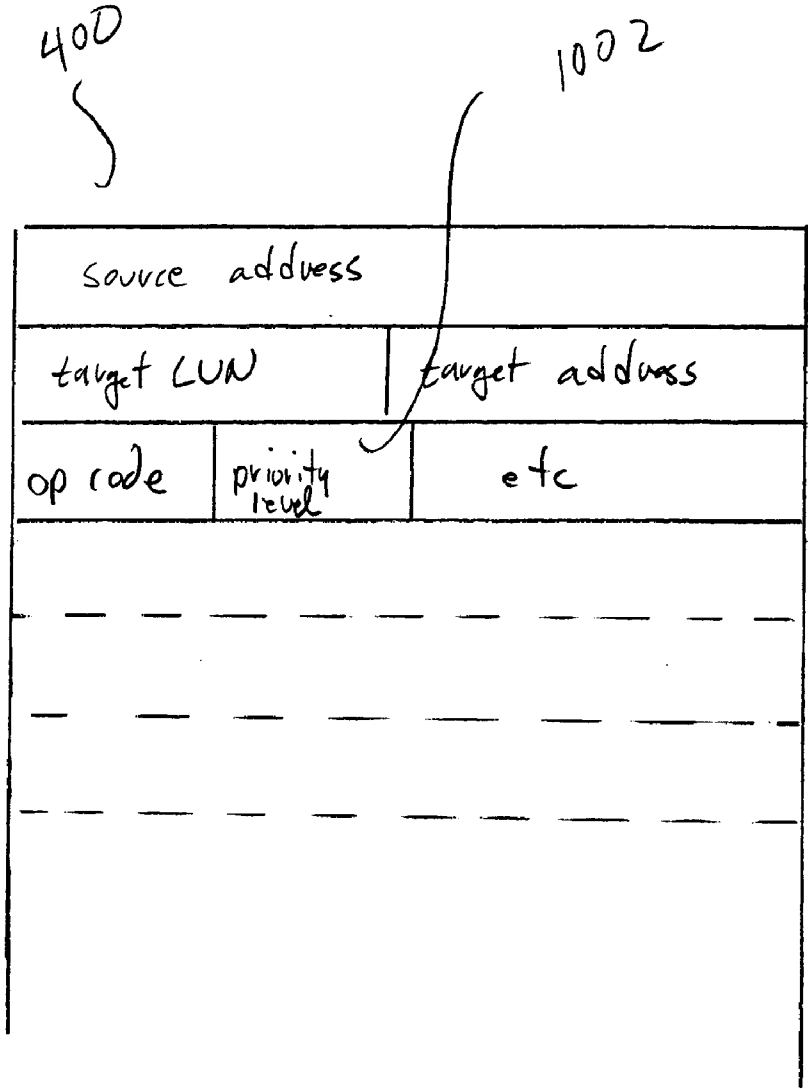 400
1002
source address
target LUN
target address
op code
priority
level
etc